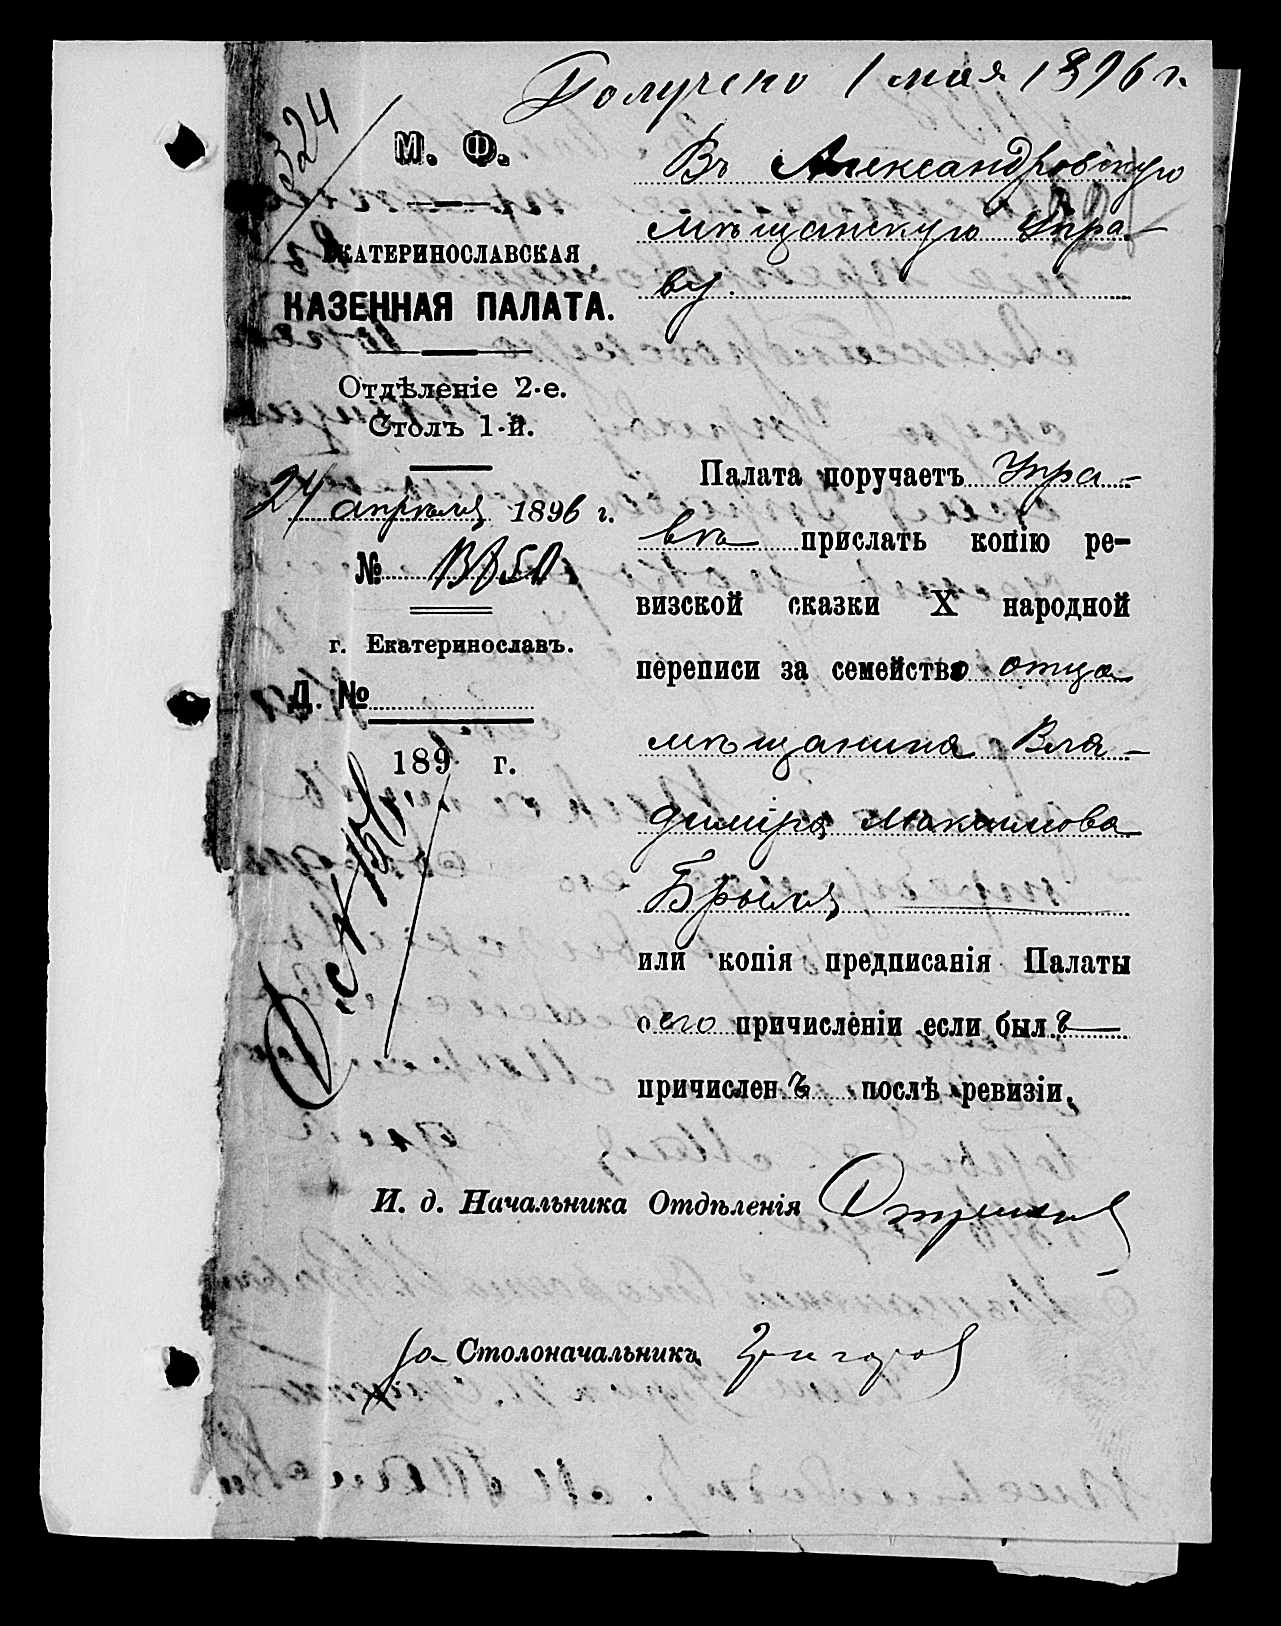 Получено 1 мая 1896 г.
324
М. Ф.
ЕКАТЕРИНОСЛАВСКАЯ
КАЗЕННАЯ ПАЛАТА.
Отдѣленіе 2-е.
Столъ 1-й.
24 апрѣля 1896 г.
№
г. Екатеринославъ.
Д. №
189 г.
Въ Александровскую
мѣщанскую Упра-
ву
Палата поручаетъ Упра-
вѣ прислать копію ре-
визской сказки X народной
переписи за семейство отца
мѣщанина Вла-
диміра Максимова
Брыля
или копія предписанія Палаты
о его причисленіи если былъ
причисленъ послѣ ревизіи.
И. д. Начальника Отдѣленія
За Столоначальника Григоров